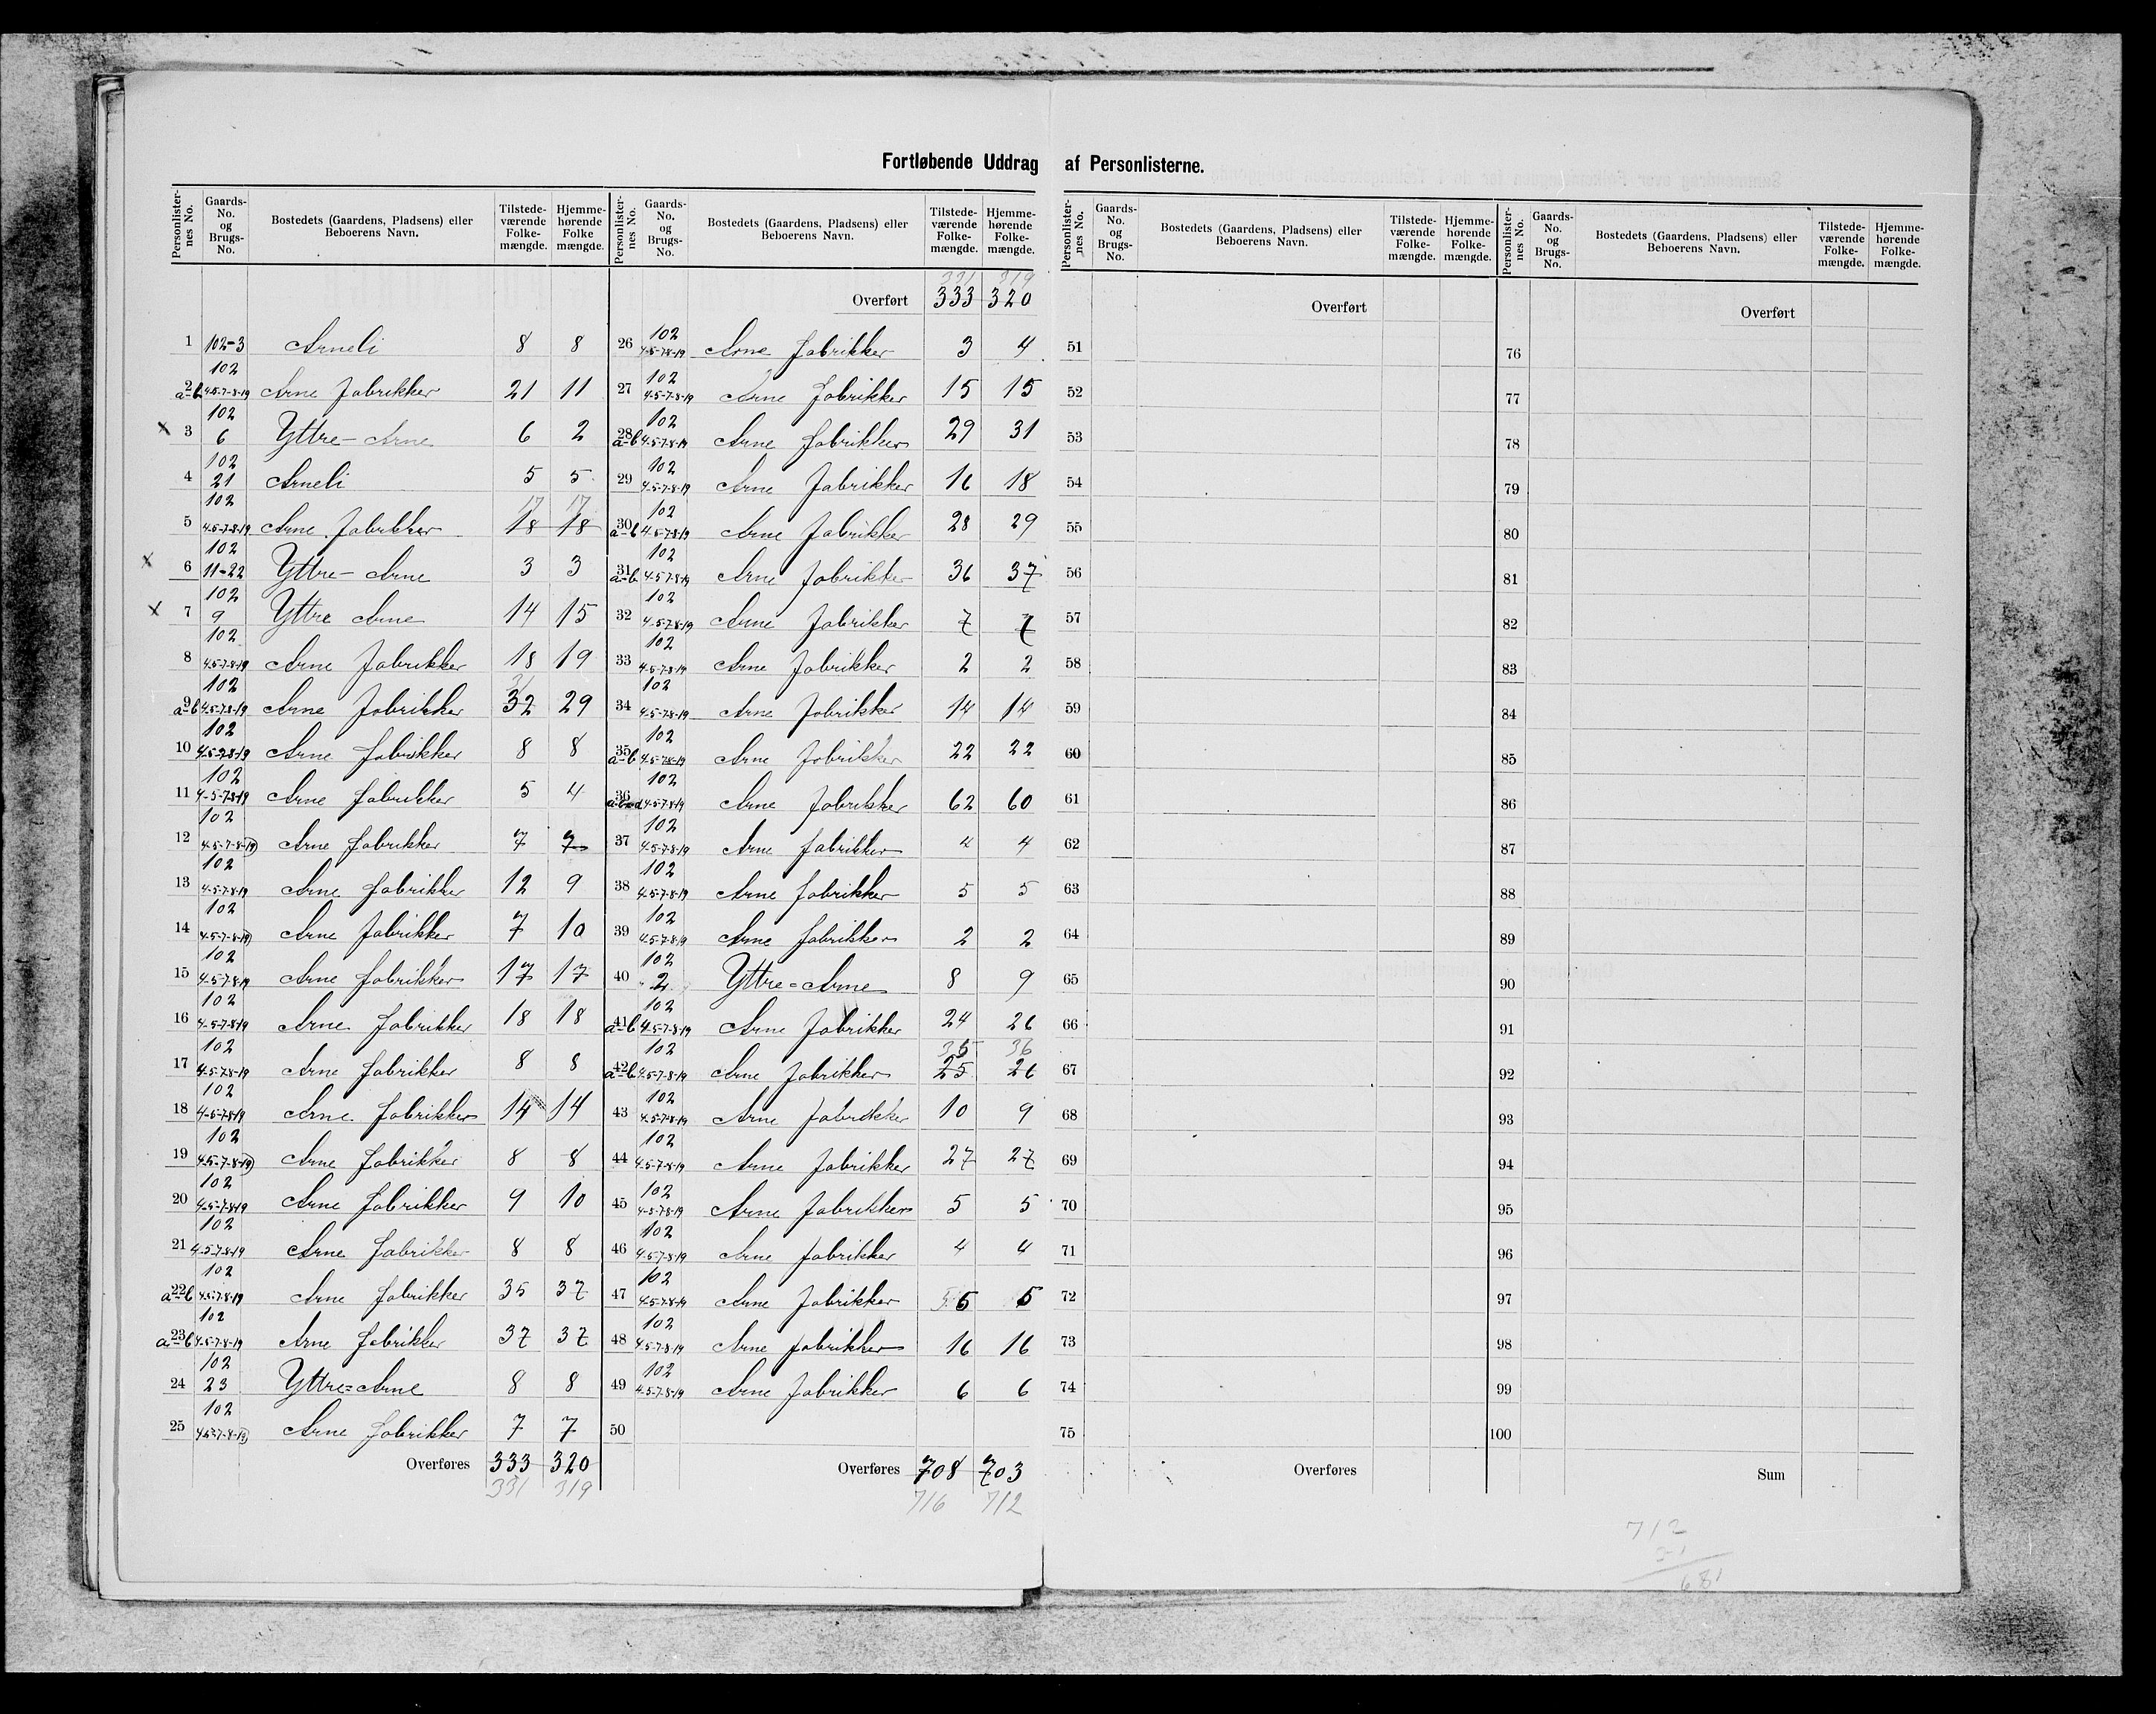 Fortløbende Uddrag af Personlisterne.
Personlisternes No. Gaards-No. og Brugs-No. Bostedets (Gaardens, Pladsens) eller Beboerens Navn. Tilstedeværende Folkemængde. Hjemmehørende Folkemængde.
1 102-3 Arneli 8 8
2 a-b 102 4-5-7-8-19 Arne Fabrikker 21 11
x 3 102 6 Yttre-Arne 6 2
4 102 21 Arneli 5 5
17 17
5 102 4-5-7-8-19 Arne Fabrikker 18 18
x 6 102 11-22 Yttre-Arne 3 3
x 7 102 9 Yttre Arne 14 15
8 102 4-5-7-8-19 Arne Fabrikker 18 19
31
9 a-b 102 4-5-7-8-19 Arne Fabrikker 32 29
10 102 4-5-7-8-19 Arne Fabrikker 8 8
11 102 4-5-7-8-19 Arne Fabrikker 5 4
12 102 4-5-7-8-19 Arne Fabrikker 7 7
13 102 4-5-7-8-19 Arne Fabrikker 12 9
14 102 4-5-7-8-19 Arne Fabrikker 7 10
15 102 4-5-7-8-19 Arne Fabrikker 17 17
16 102 4-5-7-8-19 Arne Fabrikker 18 18
17 102 4-5-7-8-19 Arne Fabrikker 8 8
18 102 4-5-7-8-19 Arne Fabrikker 14 14
19 102 4-5-7-8-19 Arne Fabrikker 8 8
20 102 4-5-7-8-19 Arne Fabrikker 9 10
21 102 4-5-7-8-19 Arne Fabrikker 8 8
22 a-b 102 4-5-7-8-19 Arne Fabrikker 35 37
23 a-b 102 4-5-7-8-19 Arne Fabrikker 37 37
24 102 23 Yttre=Arne 8 8
25 102 4-5-7-8-19 Arne Fabrikker 7 7
Overføres 333 320
331 319
Personlisternes No. Gaards-No. og Brugs-No. Bostedets (Gaardens, Pladsens) eller Beboerens Navn. Tilstedeværende Folkemængde. Hjemmehørende Folkemængde.
331 319
Overført 333 320
26 102 4-5-7-8-19 Arne Fabrikker 3 4
27 102 4-5-7-8-19 Arne Fabrikker 15 15
28 a-b 102 4-5-7-8-19 Arne Fabrikker 29 31
29 102 4-5-7-8-19 Arne Fabrikker 16 18
30 a-b 102 4-5-7-8-19 Arne Fabrikker 28 29
31 a-b 102 4-5-7-8-19 Arne Fabrikker 36 37
32 102 4-5-7-8-19 Arne Fabrikker 7 7
33 102 4-5-7-8-19 Arne Fabrikker 2 2
34 102 4-5-7-8-19 Arne Fabrikker 14 14
35 a-b 102 4-5-7-8-19 Arne Fabrikker 22 22
36 102 4-5-7-8-19 Arne Fabrikker 62 60
37 102 4-5-7-8-19 Arne Fabrikker 4 4
38 102 4-5-7-8-19 Arne Fabrikker 5 5
39 102 4-5-7-8-19 Arne Fabrikker 2 2
40 102 2 Yttre=Arne 8 9
41 a-b 102 4-5-7-8-19 Arne Fabrikker 24 26
35 36
42 a-b 102 4-5-7-8-19 Arne Fabrikker 25 26
43 102 4-5-7-8-19 Arne Fabrikker 10 9
44 102 4-5-7-8-19 Arne Fabrikker 27 27
45 102 4-5-7-8-19 Arne Fabrikker 5 5
46 102 4-5-7-8-19 Arne Fabrikker 4 4
47 102 4-5-7-8-19 Arne Fabrikker 5 5
48 102 4-5-7-8-19 Arne Fabrikker 16 16
49 102 4-5-7-8-19 Arne Fabrikker 6 6
50
Overføres 708 703
716 712
Personlisternes No. Gaards-No. og Brugs-No. Bostedets (Gaardens, Pladsens) eller Beboerens Navn. Tilstedeværende Folkemængde. Hjemmehørende Folkemængde.
Overført
51
52
53
54
55
56
57
58
59
60
61
62
63
64
65
66
67
68
69
70
71
72
73
74
75
Overføres
Personlisternes No. Gaards-No. og Brugs-No. Bostedets (Gaardens, Pladsens) eller Beboerens Navn. Tilstedeværende Folkemængde. Hjemmehørende Folkemængde.
Overført
76
77
78
79
80
81
82
83
84
85
86
87
88
89
90
91
92
93
94
95
96
97
98
99
100
Sum
712
31
681